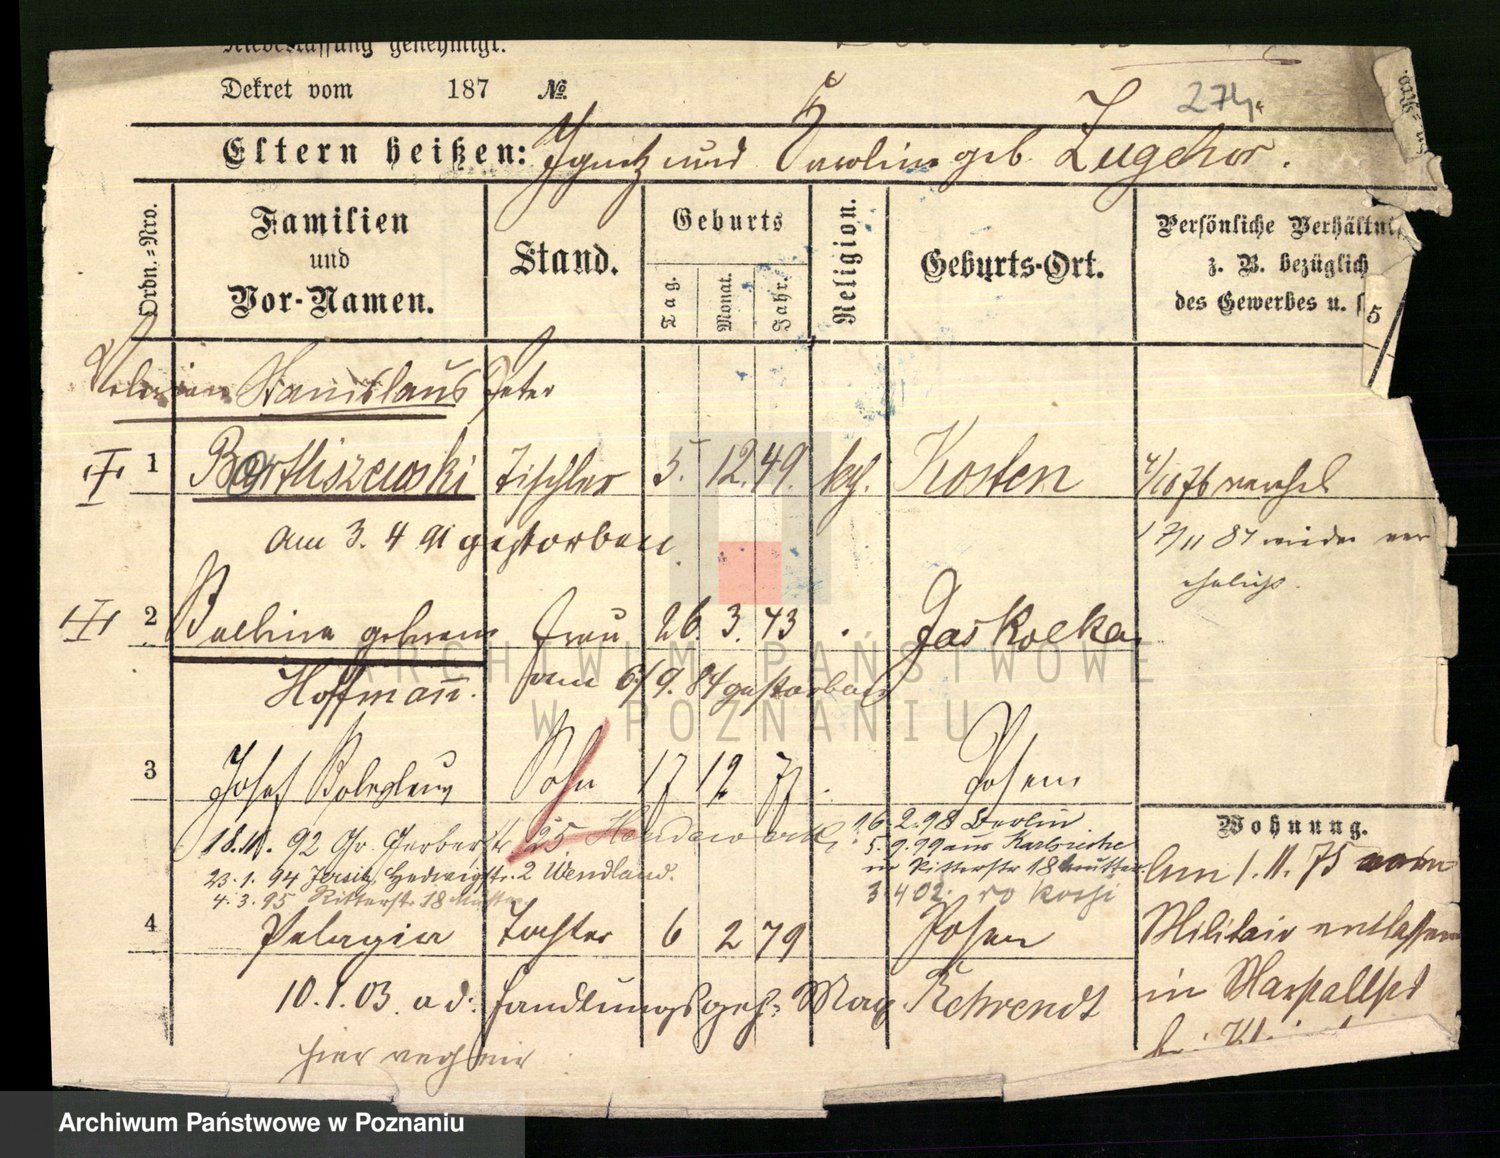 Niederlassung genehmigt.
Dekret vom 187 №
274
Eltern heißen: Ignatz und Carolina geb. Zugehor.
Ordn.=Nro.
Familien
und
Vor-Namen.
Stand.
Geburts
Tag.
Monat.
Jahr.
Religion.
Geburts-Ort.
Persönliche Verhältni
z. B. bezüglich
des Gewerbes u. s
5
Valerian Stanislaus Peter
1 Bartliszewski Tischler 5. 12. 49. kth. Kosten
4/10 76 verehel
am 3. 4 91 gestorben
17/11 87 wieder ver
ehelicht.
2 Paulina geborene Frau 26. 3. 43 Jaskolka
Hoffmann. am 6/9. 84 gestorben
3 Josef Boleslaus Sohn 17 12 77. Posen
18.11. 92 Gr. Gerberstr 25
16. 2. 98 Berlin
5. 9. 99 aus Karlsruhe
23. 1. 94 Jersitz, Hedwigstr. 2 Wendland.
in Ritterstr 18 Mutter
4. 3. 95 Ritterstr 18 Mutter
3 4 02
4 Pelagia Tochter 6 2 79 Posen
10. 1. 03. ad: Handlungsgeh: Max Behrendt
hier
Wohnung.
Am 1. 11. 75 vom
Militair entlassen
in Marstallstr
bei
ARCHIWUM PAŃSTWOWE
W POZNANIU
Archiwum Państwowe w Poznaniu